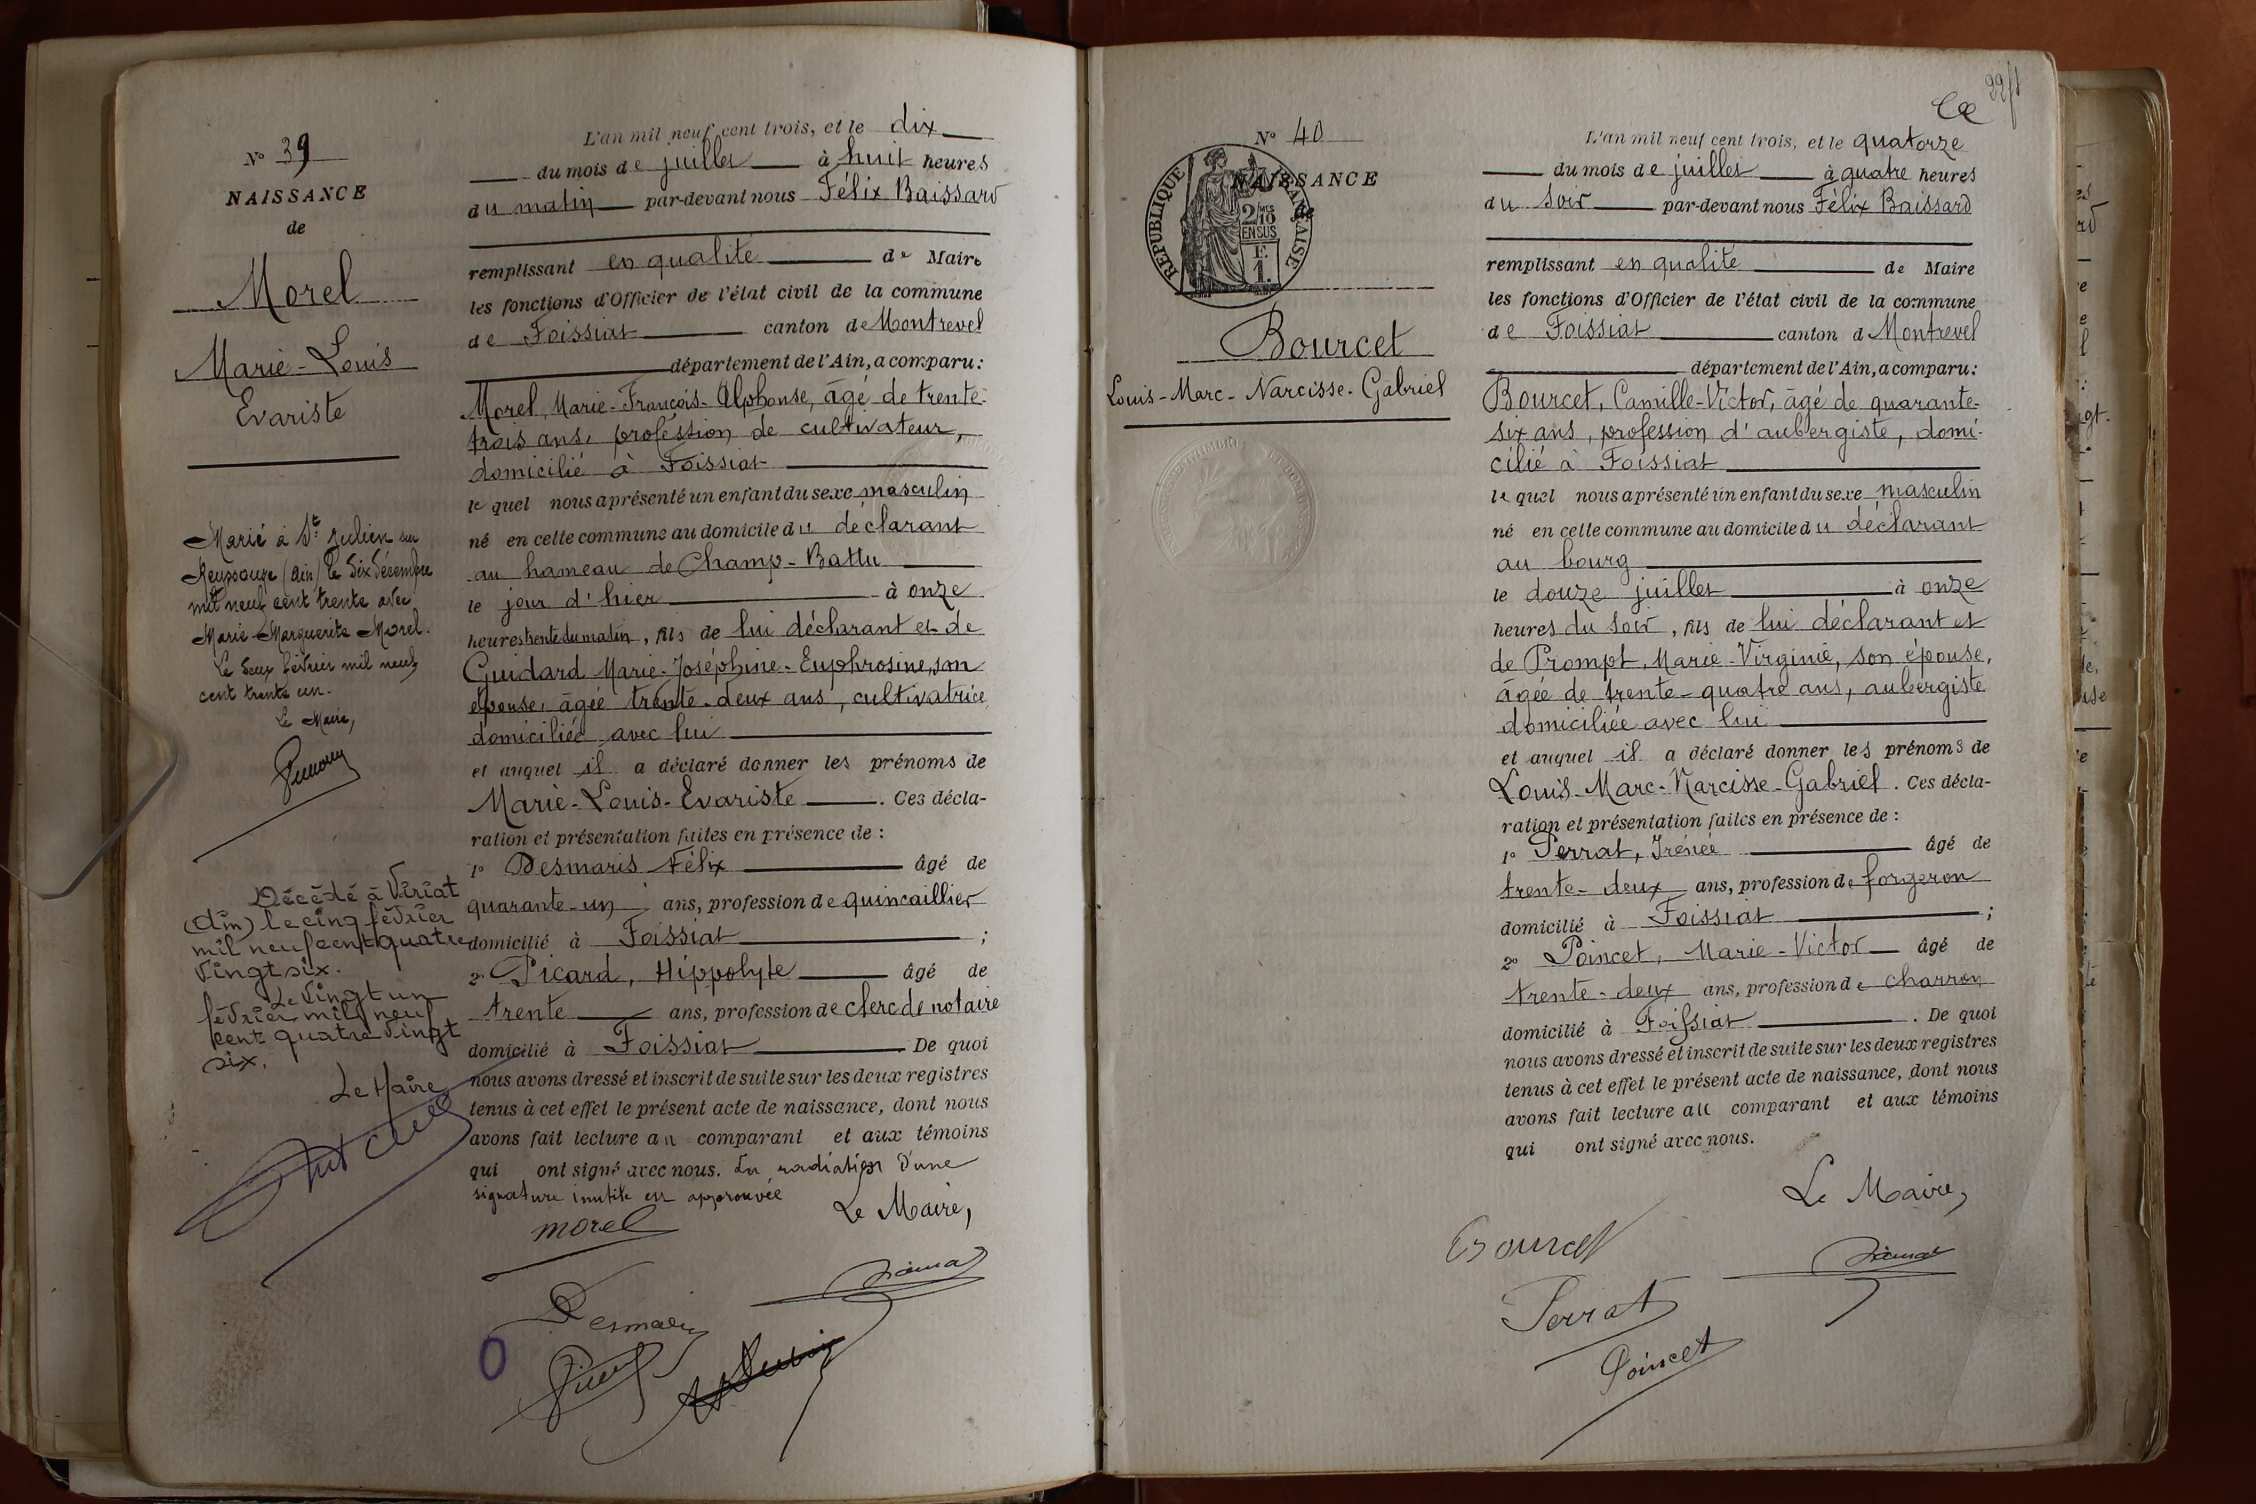 N° 39
NAISSANCE
de
Morel
Marie-Louis
Evariste
Marié à St Julien sur
Reyssouze (Ain) le dix décembre
mil neuf cent trente avec
Marie-Marguerite Morel.
Le deux février mil neuf
cent trente un.
Le Maire,
Décédé à Viriat
(Ain) le cinq février
mil neuf cent quatre
vingt six.
Le vingt un
février mil neuf
cent quatre vingt
six.
Le Maire
L'an mil neuf cent trois, et le dix
du mois de juillet à huit heures
du matin par-devant nous Félix Baissard
remplissant en qualité de Maire
les fonctions d'Officier de l'état civil de la commune
de Foissiat canton de Montrevel
département de l'Ain, a comparu:
Morel, Marie-François-Alphonse, âgé de trente-
trois ans, profession de cultivateur,
domicilié à Foissiat
le quel nous a présenté un enfant du sexe masculin
né en cette commune au domicile du déclarant
au hameau de Champ-Battu
le jour d'hier à onze
heures trente du matin, fils de lui déclarant et de
Guidard Marie-Joséphine-Euphrosine, son
épouse, âgée trente-deux ans, cultivatrice
domiciliée avec lui
et auquel il a déclaré donner les prénoms de
Marie-Louis-Evariste. Ces décla-
ration et présentation faites en présence de :
1° Desmaris Félix âgé de
quarante-un ans, profession de quincaillier
domicilié à Foissiat ;
2° Picard, Hippolyte âgé de
trente ans, profession de clerc de notaire
domicilié à Foissiat De quoi
nous avons dressé et inscrit de suite sur les deux registres
tenus à cet effet le présent acte de naissance, dont nous
avons fait lecture au comparant et aux témoins
qui ont signé avec nous. La radiation d'une
signature inutile est approuvée
Le Maire,
morel
Desmaris
N° 40
NAISSANCE
de
RÉPUBLIQUE FRANÇAISE
2/10 MES
EN SUS
F.
1.
Bourcet
Louis-Marc-Narcisse-Gabriel
22/1
L'an mil neuf cent trois, et le quatorze
du mois de juillet à quatre heures
du soir par-devant nous Félix Baissard
remplissant en qualité de Maire
les fonctions d'Officier de l'état civil de la commune
de Foissiat canton d Montrevel
département de l'Ain, a comparu:
Bourcet, Camille-Victor, âgé de quarante-
six ans, profession d'aubergiste, domi-
cilié à Foissiat
le quel nous a présenté un enfant du sexe masculin
né en cette commune au domicile du déclarant
au bourg
le douze juillet à onze
heures du soir, fils de lui déclarant et
de Prompt, Marie-Virginie, son épouse,
âgée de trente-quatre ans, aubergiste
domiciliée avec lui
et auquel il a déclaré donner les prénoms de
Louis-Marc-Narcisse-Gabriel. Ces décla-
ration et présentation faites en présence de :
1° Perrat, Irénée âgé de
trente-deux ans, profession de forgeron
domicilié à Foissiat ;
2° Poincet, Marie-Victor âgé de
trente-deux ans, profession de charron
domicilié à Foissiat. De quoi
nous avons dressé et inscrit de suite sur les deux registres
tenus à cet effet le présent acte de naissance, dont nous
avons fait lecture au comparant et aux témoins
qui ont signé avec nous.
Le Maire,
Bourcet
Perrat
Poincet